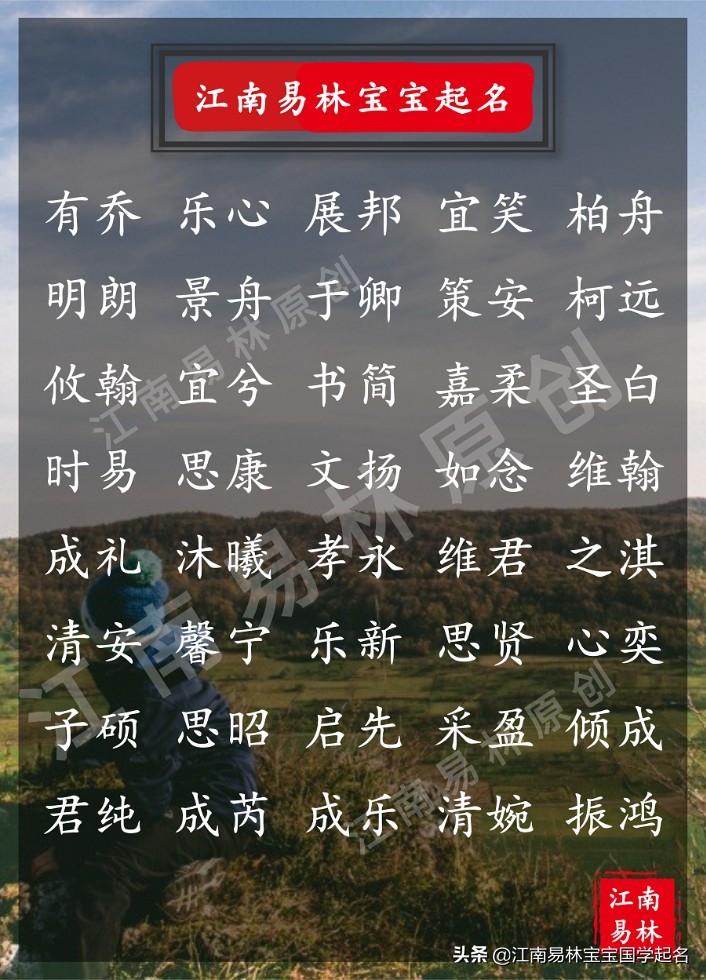 江南易林宝宝起名
有乔 乐心 展邦 宜笑 柏舟
明朗 景舟 于卿 策安 柯远
攸翰 宜兮 书简 嘉柔 圣白
时易 思康 文扬 如念 维翰
成礼 沐曦 孝永 维君 之淇
清安 馨宁 乐新 思贤 心奕
子硕 思昭 启先 采盈 倾成
君纯 成芮 成乐 清婉 振鸿
江南易林原创
江南易林原创
江南易林原创
江南
易林
头条 @江南易林宝宝国学起名